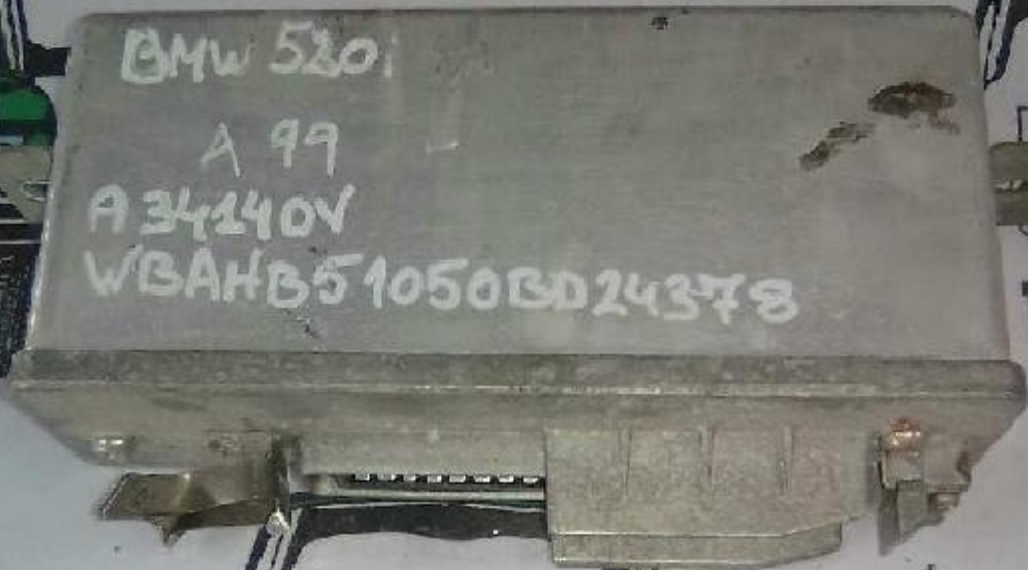 BMW 520i
A 99
A34140V
WBAHB51050BD24378